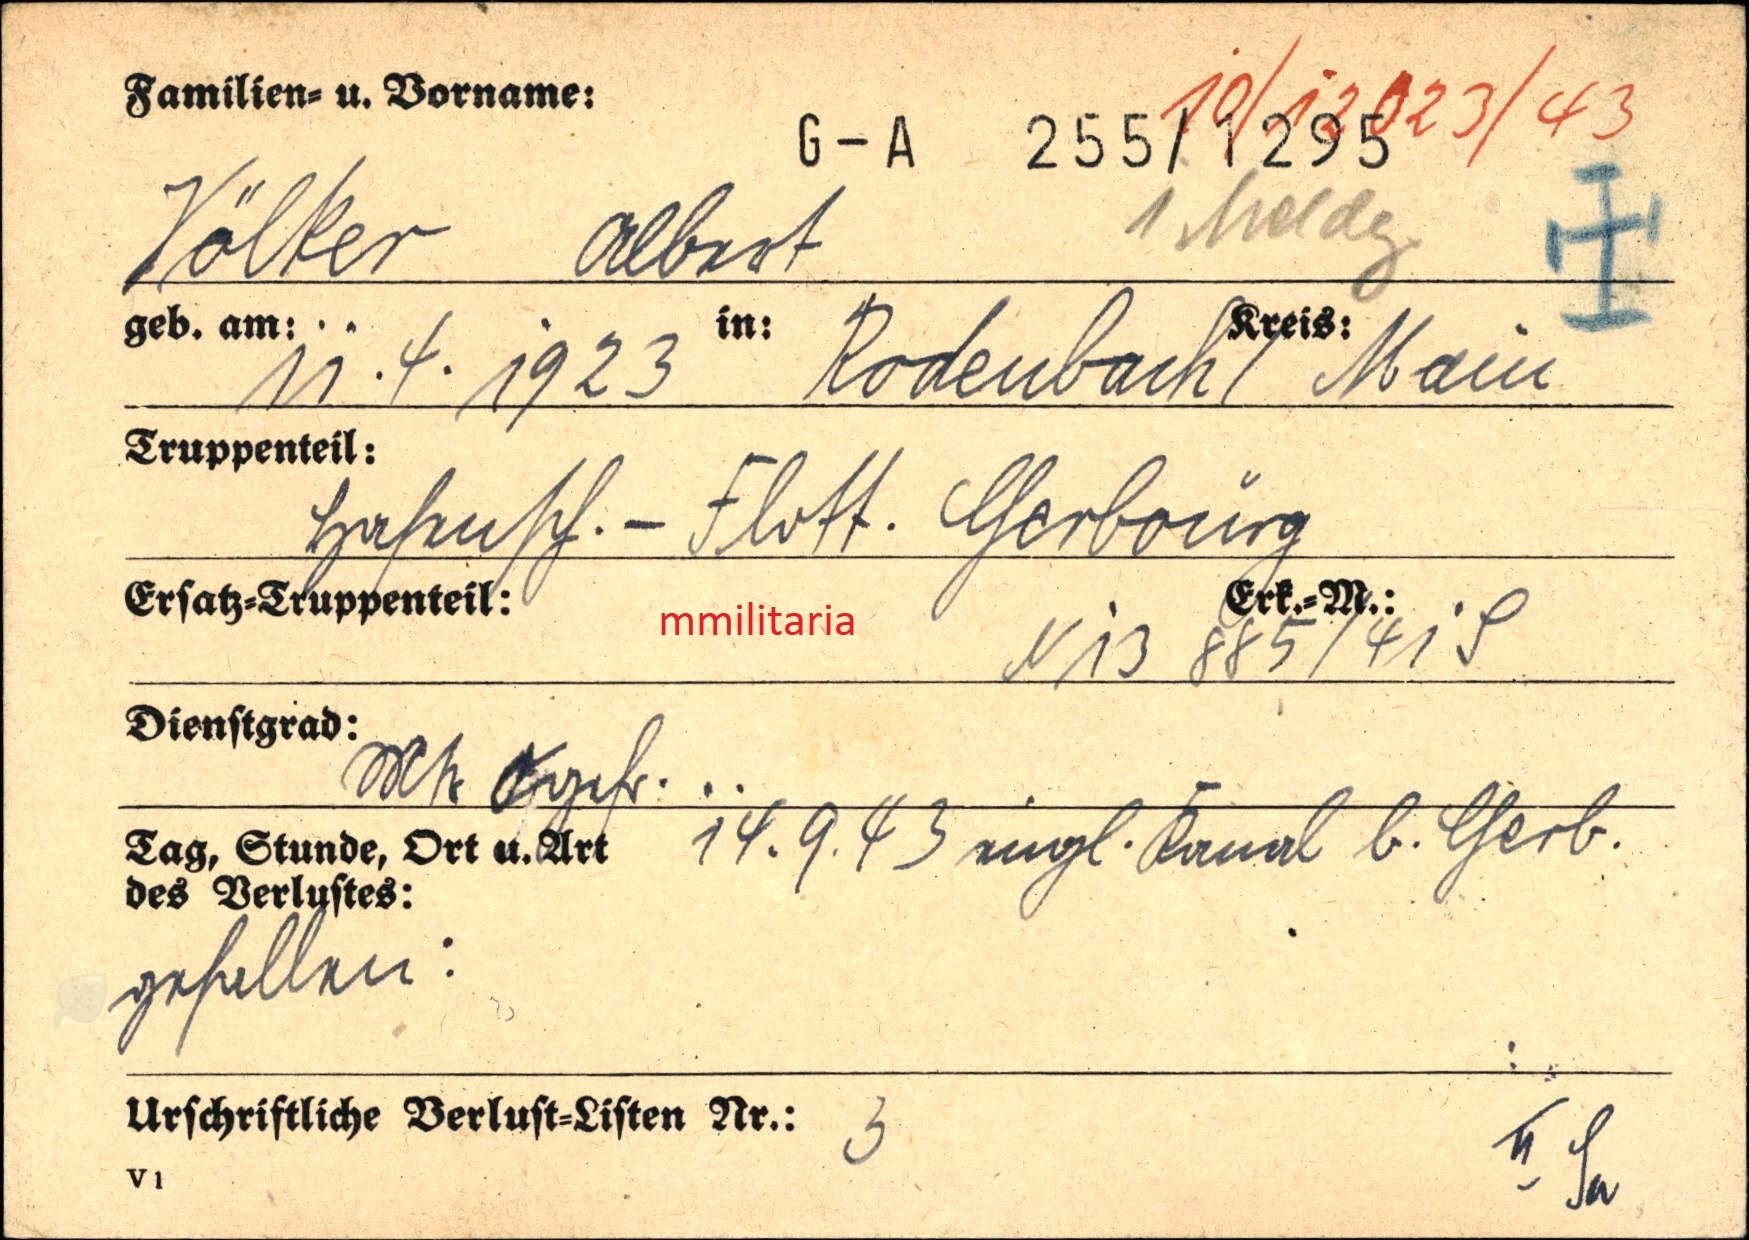 Familien- u. Vorname:
10/12023/43
G-A 255/1295
Völker Albert
1 Meldg.
geb. am: 11.4.1923 in: Rodenbach / Kreis: Main
Truppenteil:
Hafensch. - Flott. Cherbourg
Ersatz-Truppenteil: Erk.-M.:
mmilitaria
N 13 885/41 S
Dienstgrad:
gefr.
Tag, Stunde, Ort u. Art 14.9.43 engl. Kanal b. Cherb.
des Verlustes:
gefallen:
Urschriftliche Verlust-Listen Nr.: 3
V 1